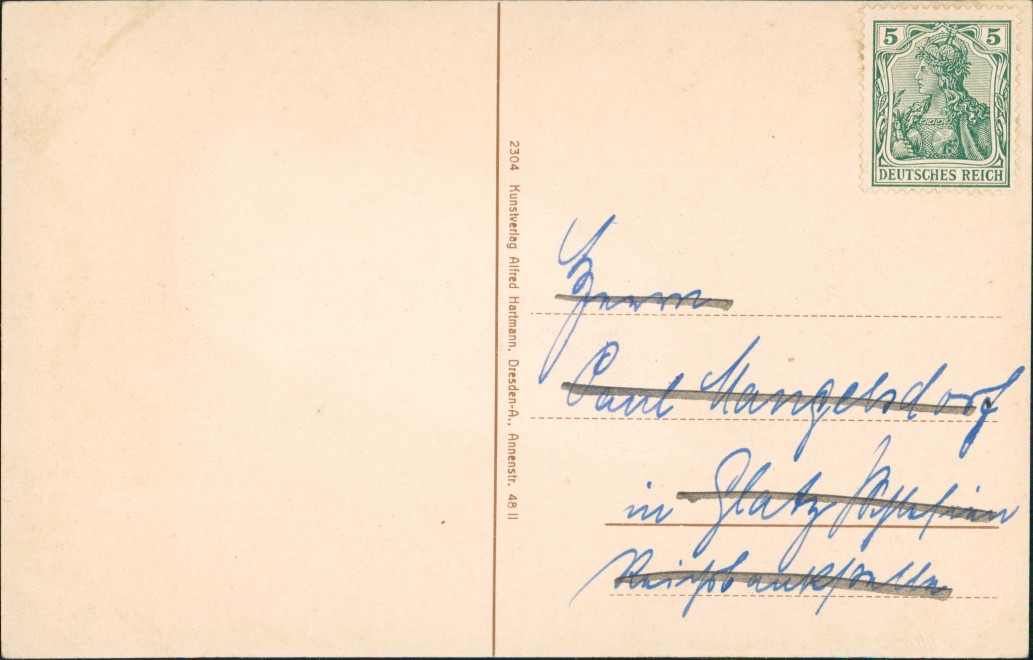 5 5
DEUTSCHES REICH
2304 Kunstverlag Alfred Hartmann, Dresden-A., Annenstr. 48 II
Herrn
Paul Mangelsdorf
in Glatz Schlesien
Reichsbankstelle